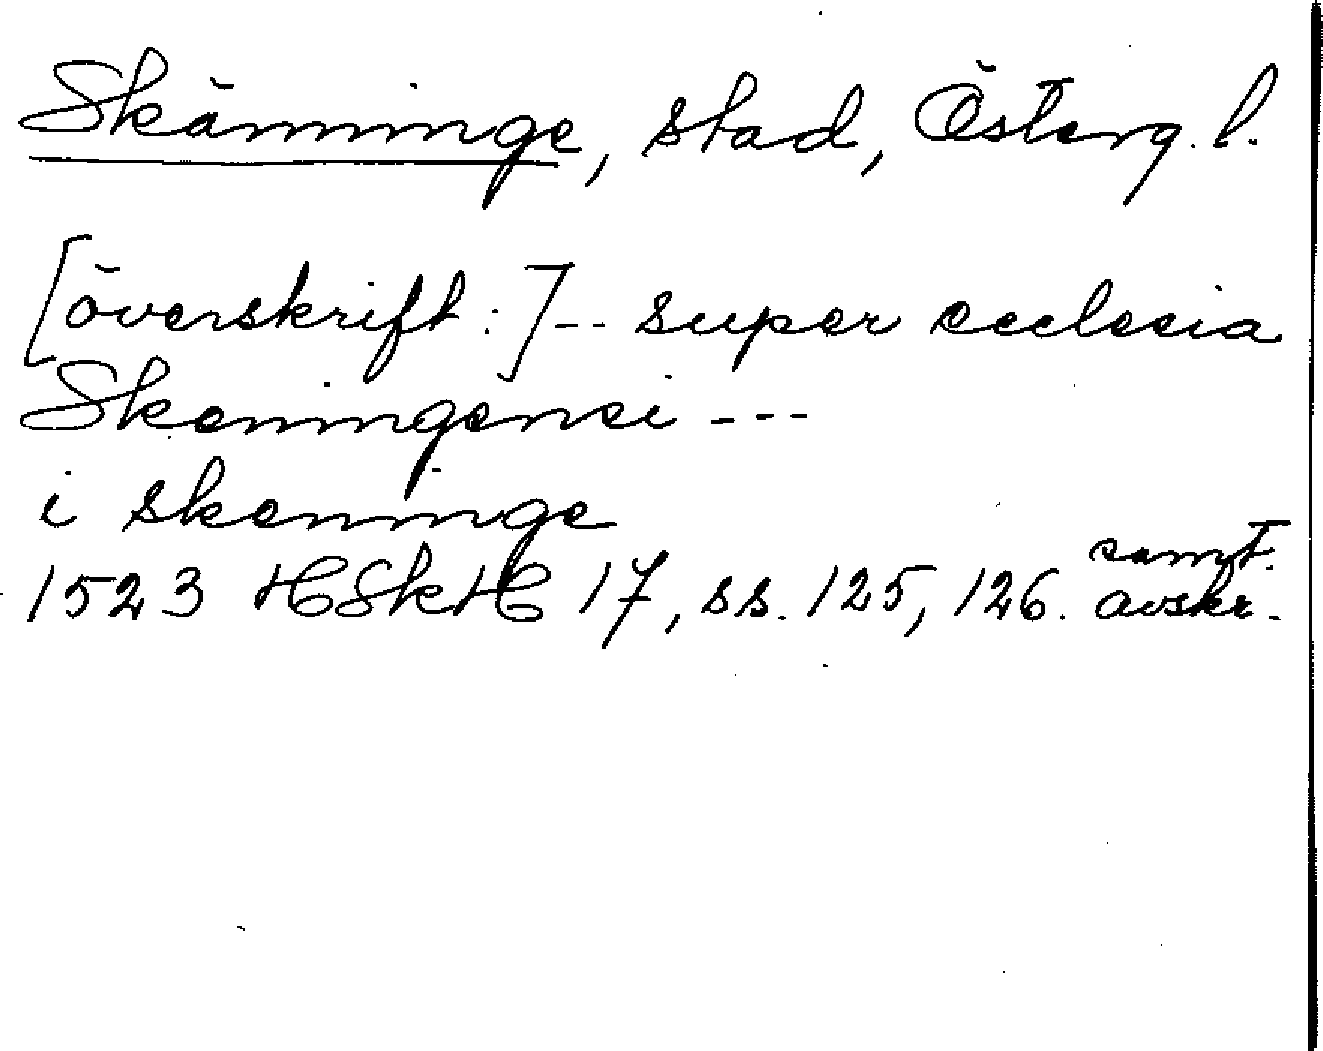 Skänninge, stad, Österg. l.
[överskrift:] -- super ecclesia
Skeningensi ---
i skenninge
samt.
1523 HSkH 17, ss. 125, 126. avskr.